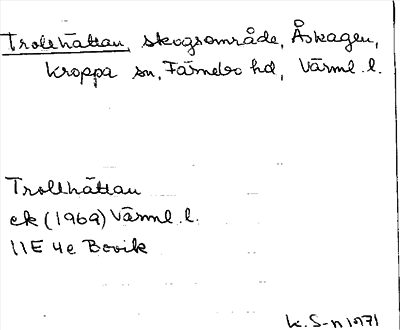 Trollhättan, skogsområde, Åskagen,
Kroppa sn, Färnebo hd, Värml. l.
Trollhättan
ek (1969) Värml. l.
11E 4e Bovik
K. S-n 1971